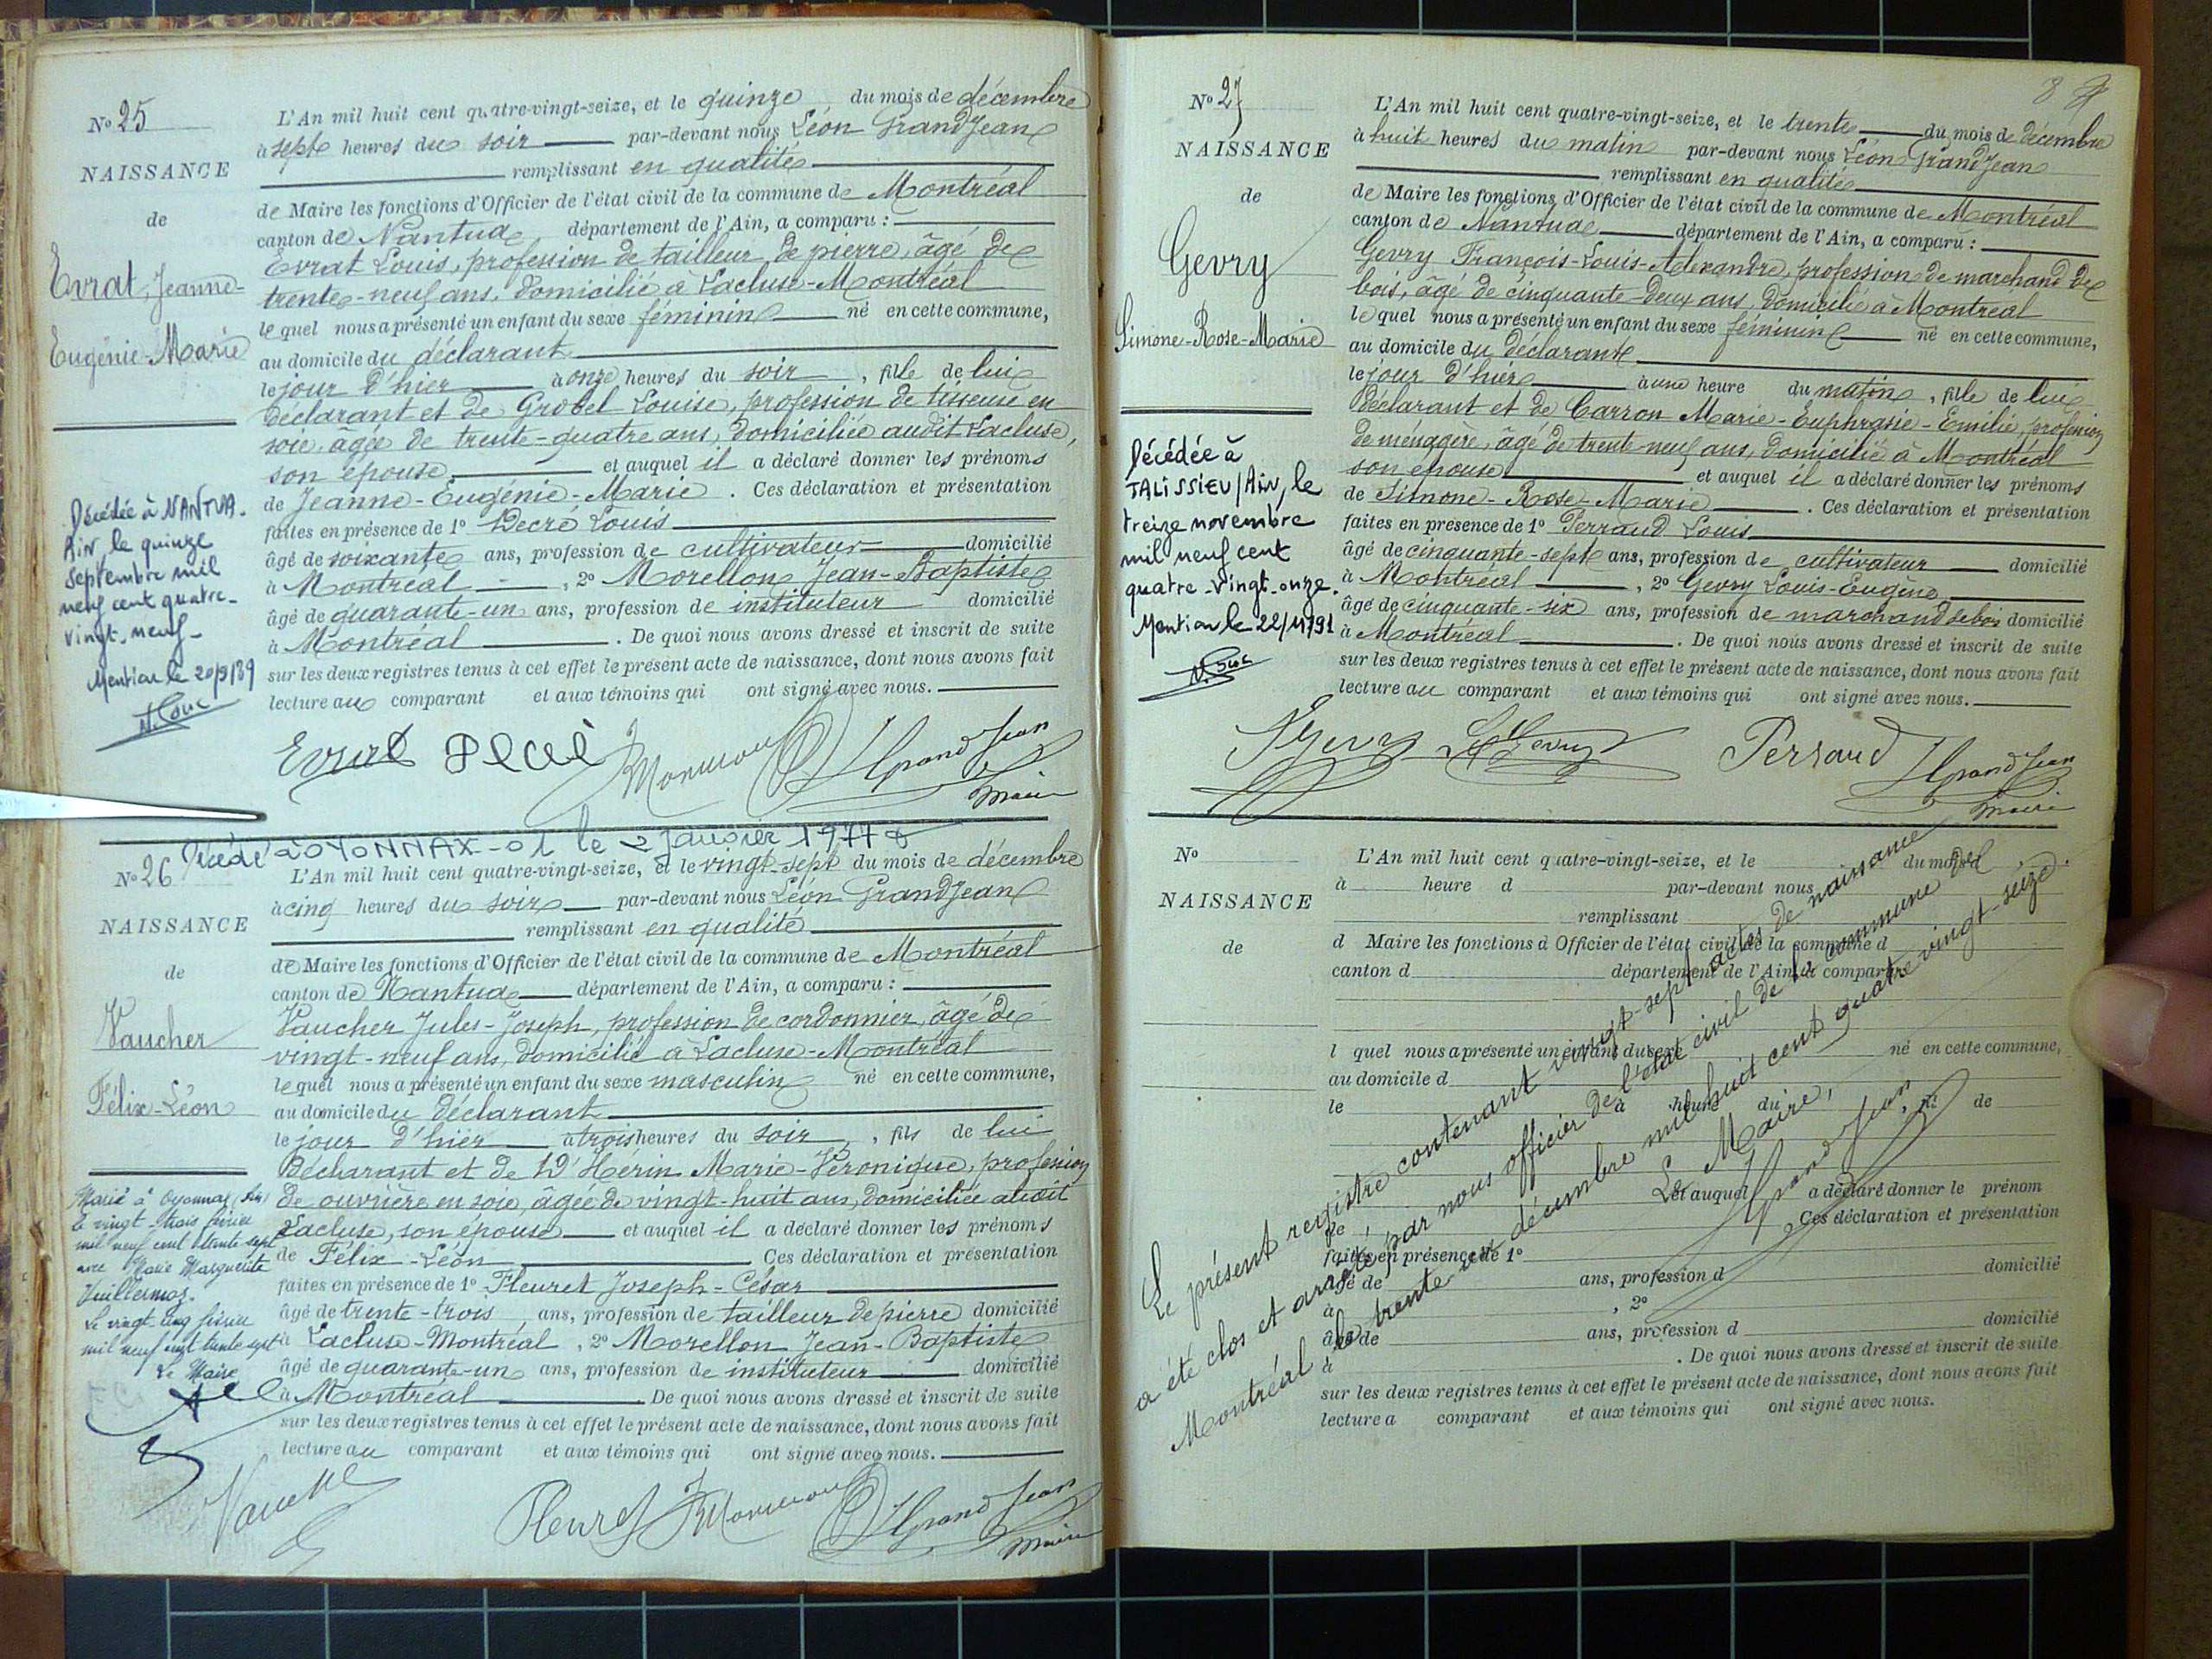 No 25
NAISSANCE
de
Evrat, Jeanne-
Eugénie-Marie
L'An mil huit cent quatre-vingt-seize, et le quinze du mois de décembre
à sept heures du soir par-devant nous Léon GrandJean
remplissant en qualité
de Maire les fonctions d'Officier de l'état civil de la commune de Montréal
canton de Nantua département de l'Ain, a comparu :
Evrat Louis, profession de tailleur de pierre, âgé de
trente-neuf ans, domicilié à Lacluse-Montréal
lequel nous a présenté un enfant du sexe féminin né en cette commune,
au domicile du déclarant
le jour d'hier à onze heures du soir, fille de lui
déclarant et de Grobel Louise, profession de tisseuse en
soie, âgée de trente-quatre ans, domiciliée audit Lacluse,
son épouse et auquel il a déclaré donner les prénoms
de Jeanne-Eugénie-Marie. Ces déclaration et présentation
faites en présence de 1º Decré Louis
âgé de soixante ans, profession de cultivateur domicilié
à Montréal, 2º Morellon Jean-Baptiste
âgé de quarante-un ans, profession de instituteur domicilié
à Montréal. De quoi nous avons dressé et inscrit de suite
sur les deux registres tenus à cet effet le présent acte de naissance, dont nous avons fait
lecture au comparant et aux témoins qui ont signé avec nous.
Décédée à NANTUA-
Ain, le quinze
septembre mil
neuf cent quatre-
vingt-neuf-
Mention le 20/9/89
Evrat Decré Morellon GrandJean
Maire
Décédé à OYONNAX-01 le 2 janvier 1977
No 26
NAISSANCE
de
Vaucher
Félix-Léon
L'An mil huit cent quatre-vingt-seize, et le vingt-sept du mois de décembre
à cinq heures du soir par-devant nous Léon GrandJean
remplissant en qualité
de Maire les fonctions d'Officier de l'état civil de la commune de Montréal
canton de Nantua département de l'Ain, a comparu :
Vaucher Jules-Joseph, profession de cordonnier, âgé de
vingt-neuf ans, domicilié à Lacluse-Montréal
lequel nous a présenté un enfant du sexe masculin né en cette commune,
au domicile du déclarant
le jour d'hier à trois heures du soir, fils de lui
Déclarant et de D'Hérin Marie-Véronique, profession
de ouvrière en soie, âgée de vingt-huit ans, domiciliée audit
Lacluse, son épouse et auquel il a déclaré donner les prénoms
de Félix-Léon Ces déclaration et présentation
faites en présence de 1º Fleuret Joseph-César
âgé de trente-trois ans, profession de tailleur de pierre domicilié
à Lacluse-Montréal, 2º Morellon Jean-Baptiste
âgé de quarante-un ans, profession de instituteur domicilié
à Montréal De quoi nous avons dressé et inscrit de suite
sur les deux registres tenus à cet effet le présent acte de naissance, dont nous avons fait
lecture au comparant et aux témoins qui ont signé avec nous.
Marié à Oyonnax (Ain)
le vingt-trois février
mil neuf cent trente sept
avec Marie Marguerite
Vuillermoz.
Le vingt-cinq février
mil neuf cent trente sept
Le Maire
Vaucher Fleuret Morellon GrandJean
Maire
8
No 27
NAISSANCE
de
Gevry
Simone-Rose-Marie
L'An mil huit cent quatre-vingt-seize, et le trente du mois de décembre
à huit heures du matin par-devant nous Léon GrandJean
remplissant en qualité
de Maire les fonctions d'Officier de l'état civil de la commune de Montréal
canton de Nantua département de l'Ain, a comparu :
Gevry François-Louis-Alexandre, profession de marchand de
bois, âgé de cinquante-deux ans, domicilié à Montréal
lequel nous a présenté un enfant du sexe féminin né en cette commune,
au domicile du déclarant
le jour d'hier à une heure du matin, fille de lui
déclarant et de Carron Marie-Euphrasie-Emilie, profession
de ménagère, âgé de trente-neuf ans, domicilié à Montréal
son épouse et auquel il a déclaré donner les prénoms
de Simone-Rose-Marie. Ces déclaration et présentation
faites en présence de 1º Perraud Louis
âgé de cinquante-sept ans, profession de cultivateur domicilié
à Montréal, 2º Gevry Louis-Eugène
âgé de cinquante-six ans, profession de marchand de bois domicilié
à Montréal. De quoi nous avons dressé et inscrit de suite
sur les deux registres tenus à cet effet le présent acte de naissance, dont nous avons fait
lecture au comparant et aux témoins qui ont signé avec nous.
Décédée à
TALISSIEU/Ain, le
treize novembre
mil neuf cent
quatre-vingt-onze.
Mention le 22/11/91
Gevry L. Gevry Perraud GrandJean
Maire
No
NAISSANCE
de
L'An mil huit cent quatre-vingt-seize, et le du mois d
à heure d par-devant nous
remplissant
d Maire les fonctions d'Officier de l'état civil de la commune d
canton d département de l'Ain, a comparu
l quel nous a présenté un enfant du sexe né en cette commune,
au domicile d
le à heure du , fi de
et auquel a déclaré donner le prénom
de Ces déclaration et présentation
faites en présence de 1º
âgé de ans, profession d domicilié
à , 2º
âgé de ans, profession d domicilié
à . De quoi nous avons dressé et inscrit de suite
sur les deux registres tenus à cet effet le présent acte de naissance, dont nous avons fait
lecture a comparant et aux témoins qui ont signé avec nous.
Le présent registre contenant vingt-sept actes de naissance
a été clos et arrêté par nous officier de l'état civil de la commune de
Montréal le trente un décembre mil huit cent quatre vingt-seize.
Le Maire,
GrandJean